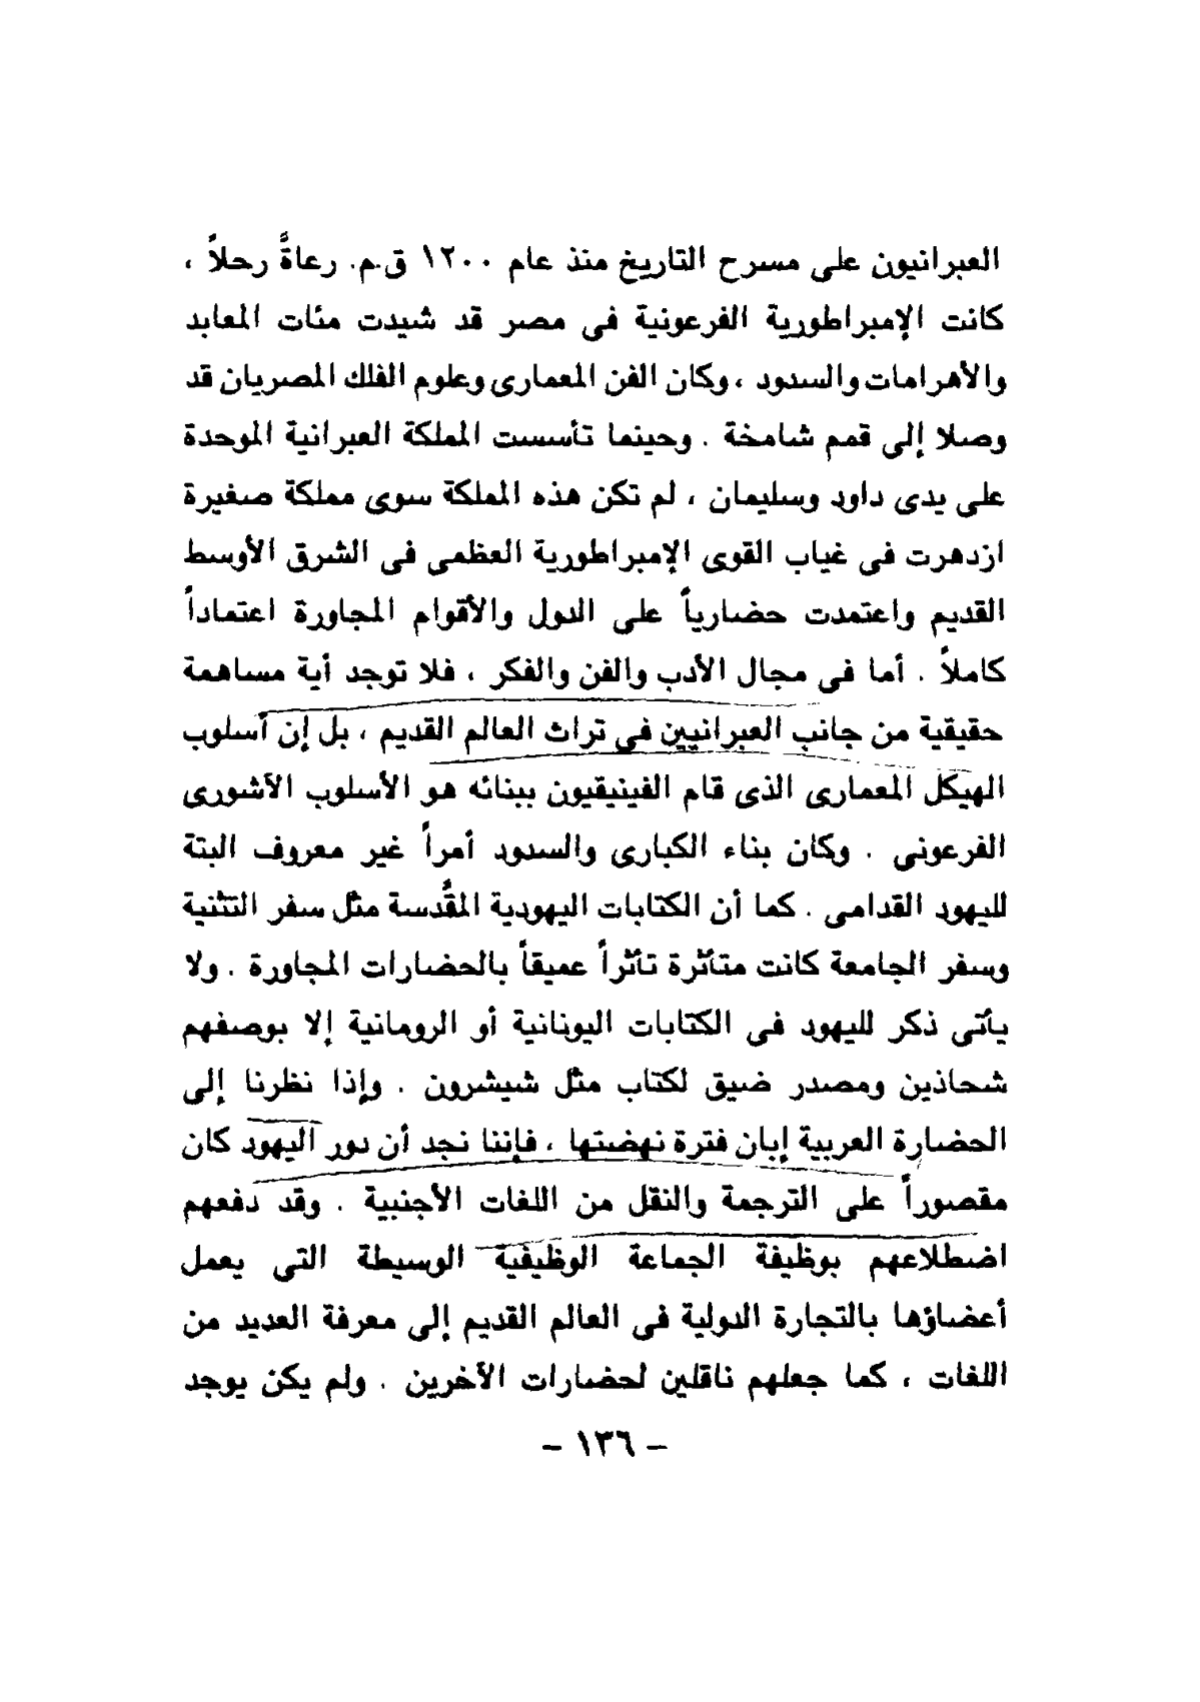 العبرانيون على مسرح التاريخ منذ عام ١٢٠٠ ق.م. رعاةً رحلاً ،
كانت الإمبراطورية الفرعونية فى مصر قد شيدت مئات المعابد
والأهرامات والسدود ، وكان الفن المعمارى وعلوم الفلك المصريان قد
وصلا إلى قمم شامخة . وحينما تأسست المملكة العبرانية الموحدة
على يدى داود وسليمان ، لم تكن هذه المملكة سوى مملكة صغيرة
ازدهرت فى غياب القوى الإمبراطورية العظمى فى الشرق الأوسط
القديم واعتمدت حضارياً على الدول والأقوام المجاورة اعتماداً
كاملاً . أما فى مجال الأدب والفن والفكر ، فلا توجد أية مساهمة
حقيقية من جانب العبرانيين فى تراث العالم القديم ، بل إن أسلوب
الهيكل المعمارى الذى قام الفينيقيون ببنائه هو الأسلوب الآشورى
الفرعونى . وكان بناء الكبارى والسدود أمراً غير معروف البتة
لليهود القدامى . كما أن الكتابات اليهودية المقُدسة مثل سفر التثنية
وسفر الجامعة كانت متأثرة تأثراً عميقاً بالحضارات المجاورة . ولا
يأتى ذكر لليهود فى الكتابات اليونانية أو الرومانية إلا بوصفهم
شحاذين ومصدر ضيق لكتاب مثل شيشرون . وإذا نظرنا إلى
الحضارة العربية إبان فترة نهضتها ، فإننا نجد أن دور اليهود كان
مقصوراً على الترجمة والنقل من اللغات الأجنبية . وقد دفعهم
اضطلاعهم بوظيفة الجماعة الوظيفية الوسيطة التى يعمل
أعضاؤها بالتجارة الدولية فى العالم القديم إلى معرفة العديد من
اللغات ، كما جعلهم ناقلين لحضارات الآخرين . ولم يكن يوجد
– ١٣٦ –